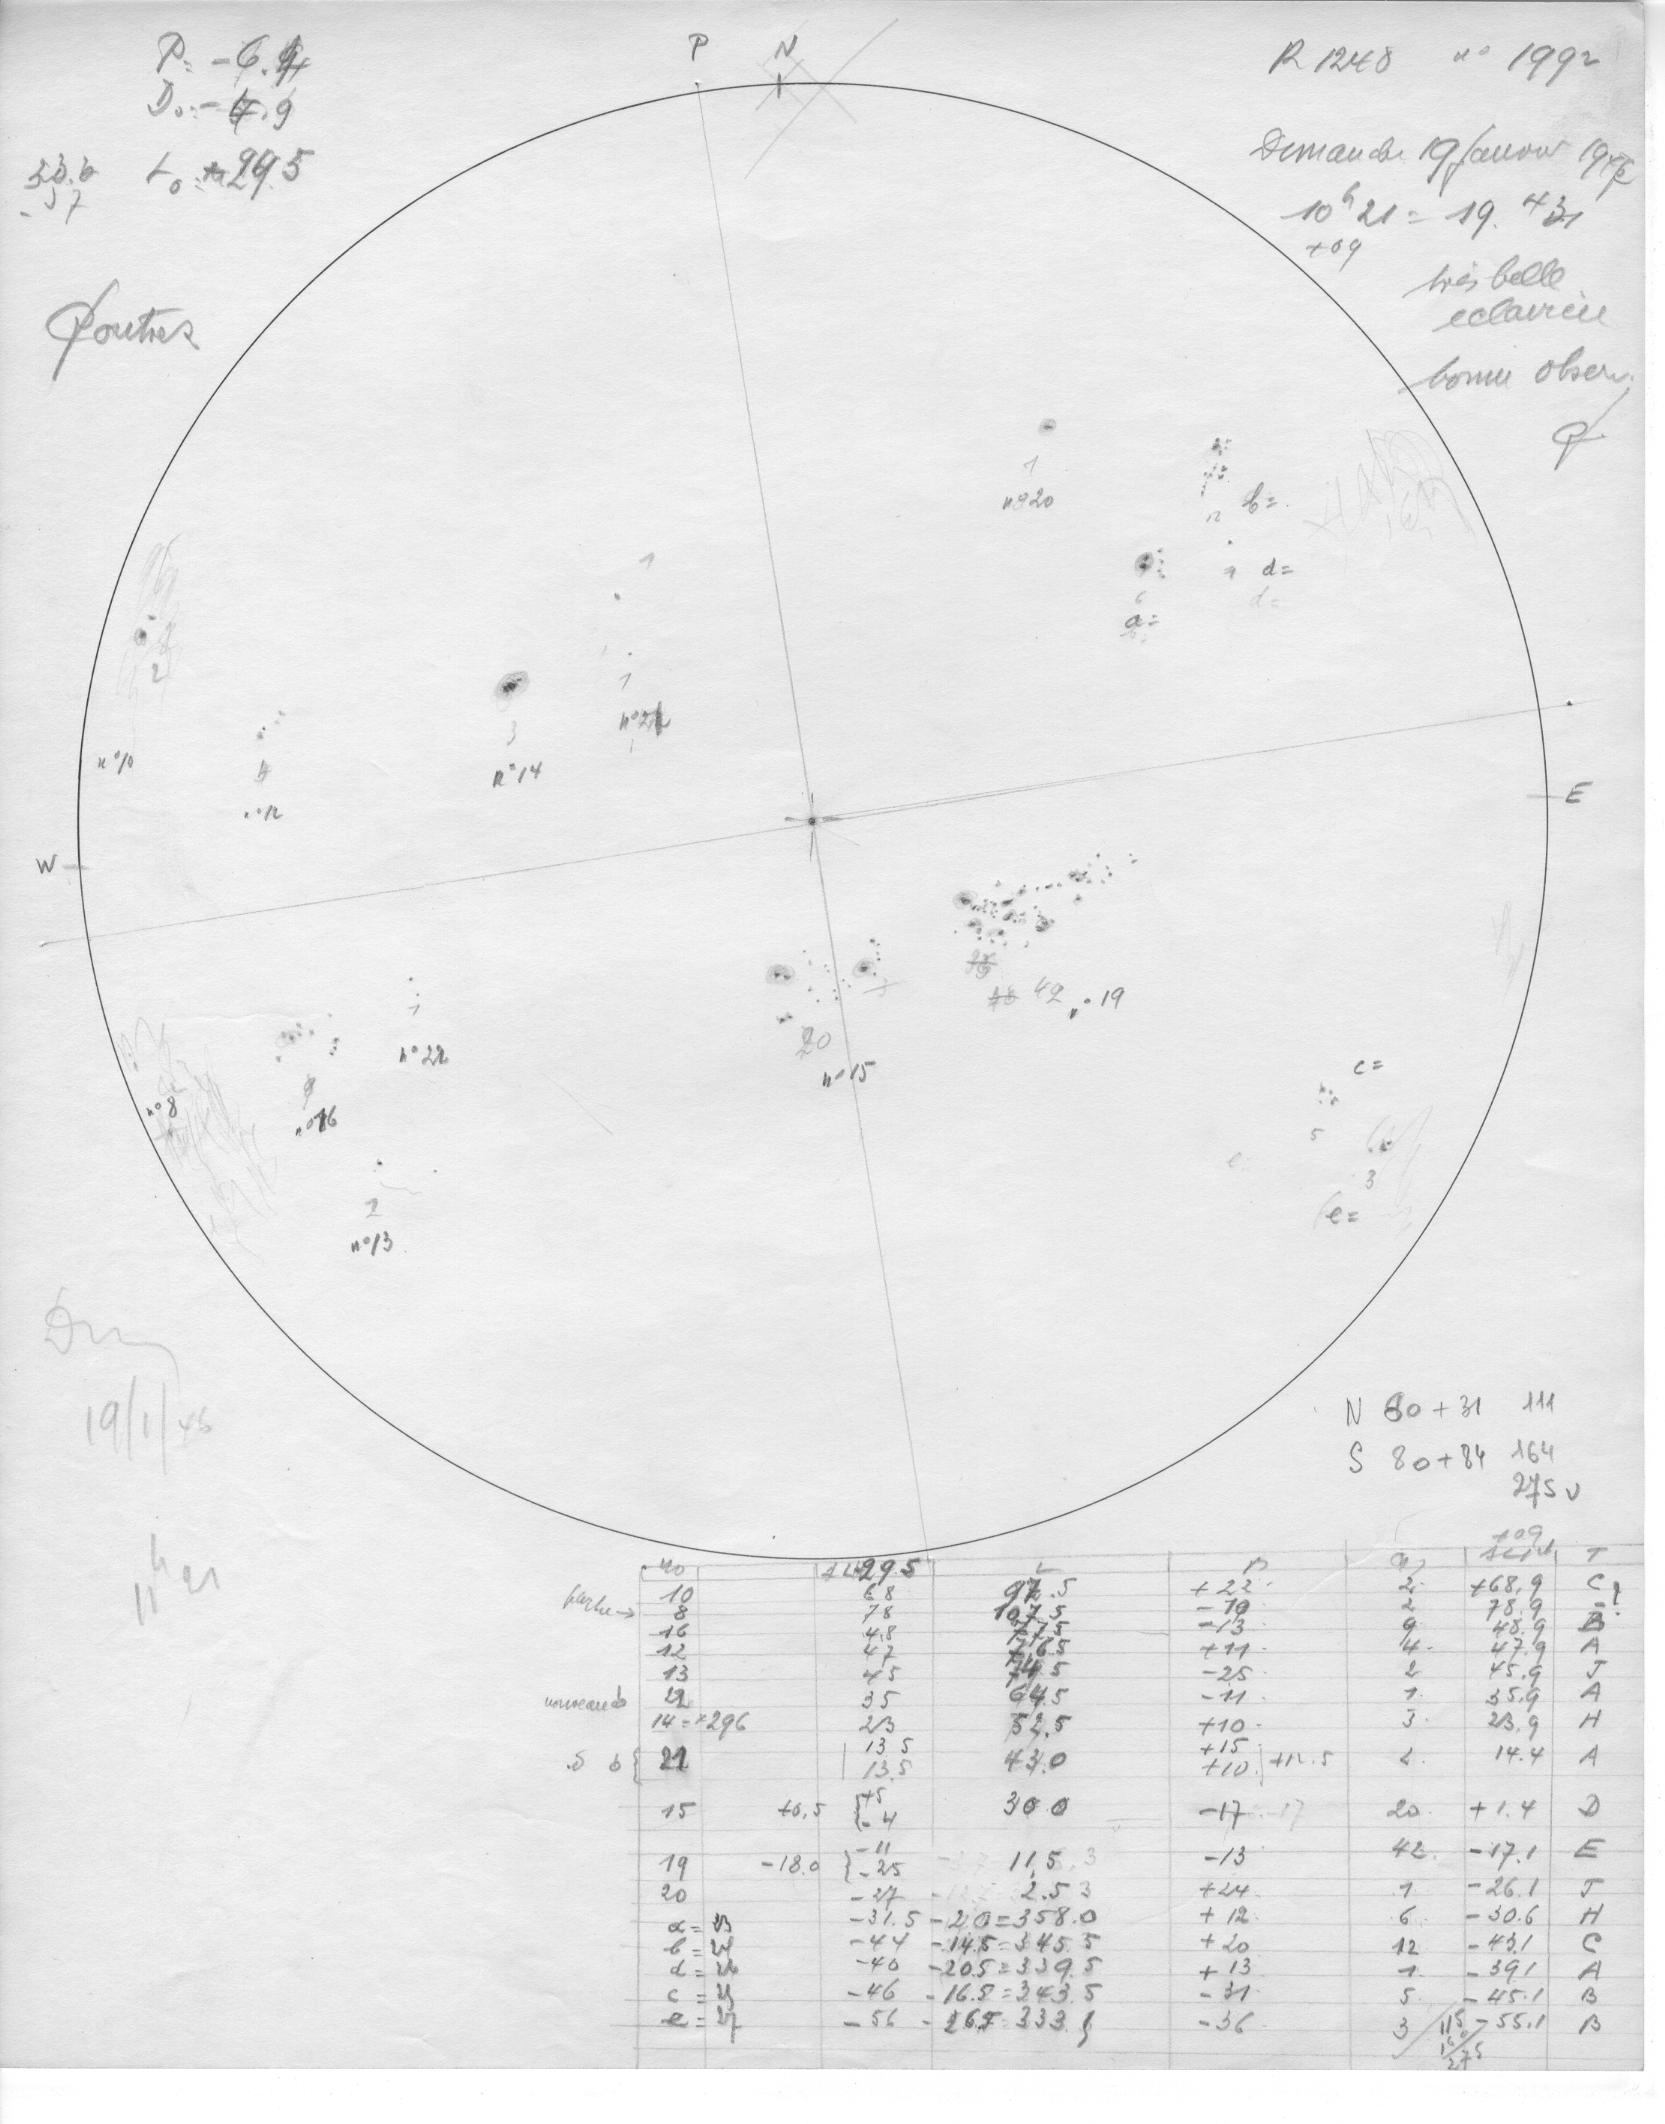 P = -6.4
D₀ = -4.9
L₀ = 29.5
33.6
- 37
P
N
R 1248 n° 1992
Dimanche 19 janvier 19
10h21 = 19.431
+ 09
très belle
eclaircie
bonne observ.
1
n° 20
12 b =
1 d =
d =
6
a =
1
1
n° 21
3
n° 14
2
n° 10
4
n° 12
W
E
42 n° 19
20
n° 15
1
n° 22
9
n° 16
n° 8
2
n° 13
c =
5
3
e =
e =
19/1/46
11h 21
N 80 + 31 111
S 80 + 84 164
275
no 29.5 L B T
10 68 97.5 + 22 2 +68.9 C
8 78 107.5 - 10 2 78.9
16 48 77.5 - 13 9 48.9 B
12 47 76.5 + 11 4 47.9 A
13 45 74.5 - 25 2 45.9 J
nouveau 22 35 64.5 - 11 1 35.9 A
14 = +296 23 52.5 +10 3 23.9 H
21 13.5 13.5 43.0 +15 +10 +12.5 2 14.4 A
15 +0.5 +5 -4 30.0 -17 20 +1.4 D
19 -18.0 -11 -25 11.5 -13 42 -17.1 E
20 -27 2.5 +24 1 -26.1 J
a = 23 -31.5 -2.0 = 358.0 + 12 6 -30.6 H
b = 24 -44 -14.5 = 345.5 + 20 12 -43.1 C
d = 26 -40 -20.5 = 339.5 + 13 1 -39.1 A
c = 25 -46 -16.5 = 343.5 - 31 5 -45.1 B
e = 27 -56 -26.5 = 333. - 36 3 -55.1 B
115
160
275